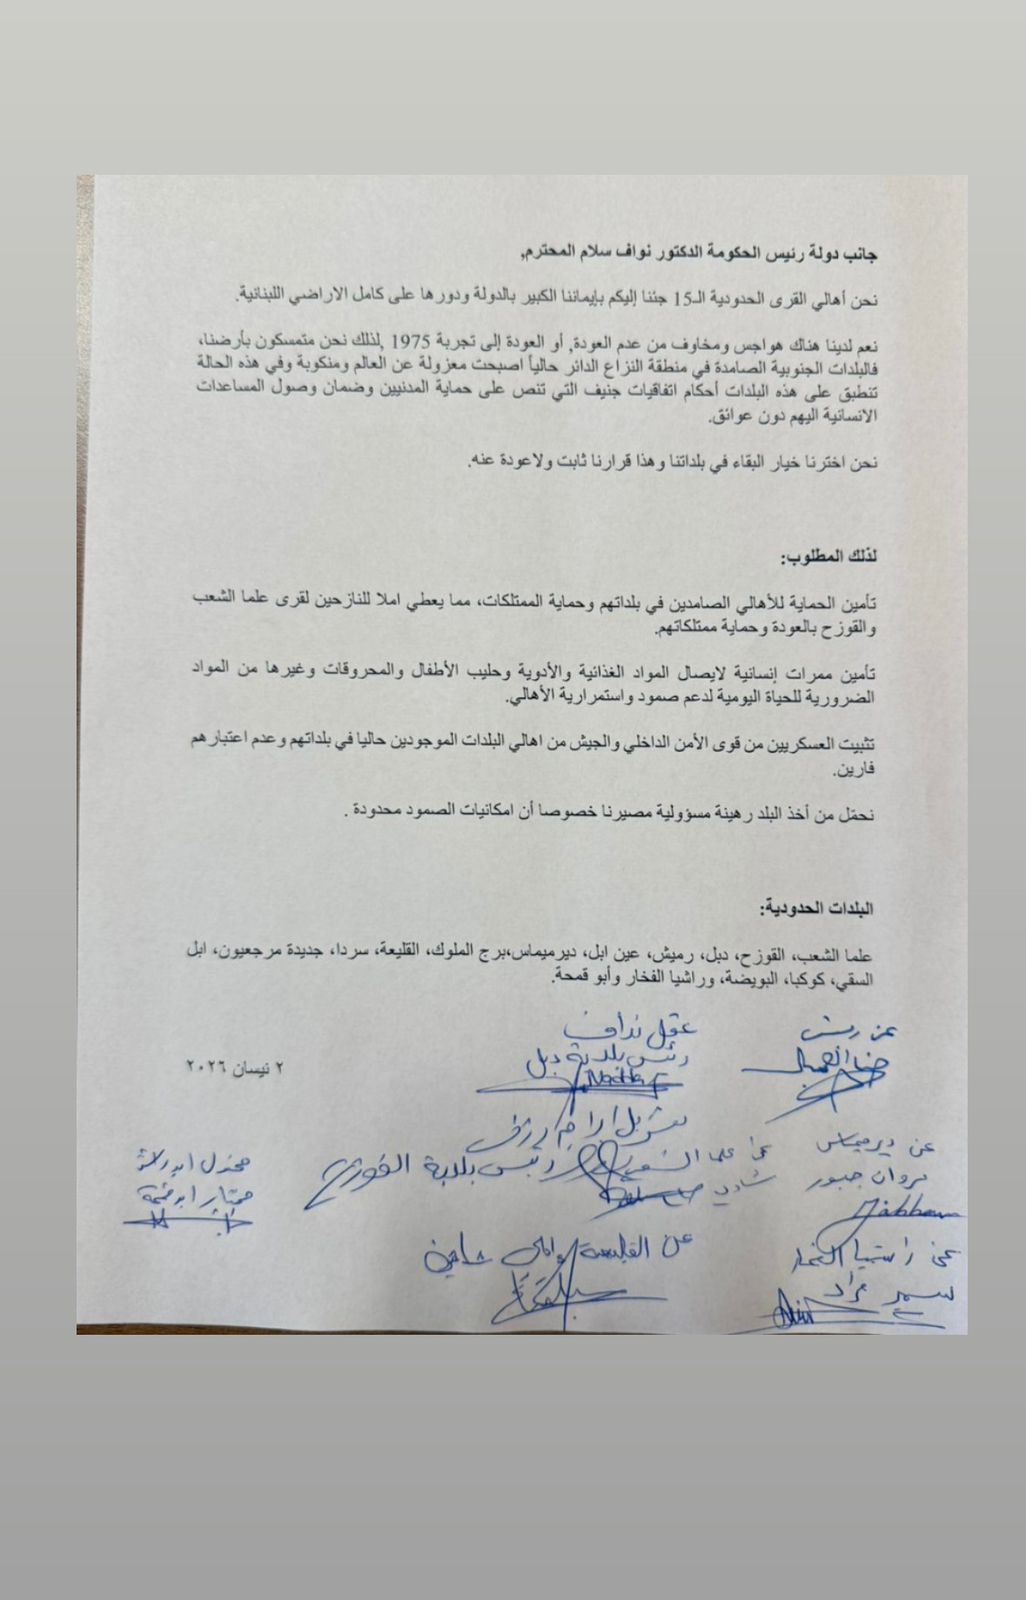 جانب دولة رئيس الحكومة الدكتور نواف سلام المحترم,
نحن أهالي القرى الحدودية الـ15 جئنا إليكم بإيماننا الكبير بالدولة ودورها على كامل الاراضي اللبنانية.
نعم لدينا هناك هواجس ومخاوف من عدم العودة, أو العودة إلى تجربة 1975 ,لذلك نحن متمسكون بأرضنا،
فالبلدات الجنوبية الصامدة في منطقة النزاع الدائر حالياً اصبحت معزولة عن العالم ومنكوبة وفي هذه الحالة
تنطبق على هذه البلدات أحكام اتفاقيات جنيف التي تنص على حماية المدنيين وضمان وصول المساعدات
الانسانية اليهم دون عوائق.
نحن اخترنا خيار البقاء في بلداتنا وهذا قرارنا ثابت ولاعودة عنه.
لذلك المطلوب:
تأمين الحماية للأهالي الصامدين في بلداتهم وحماية الممتلكات، مما يعطي املا للنازحين لقرى علما الشعب
والقوزح بالعودة وحماية ممتلكاتهم.
تأمين ممرات إنسانية لايصال المواد الغذائية والأدوية وحليب الأطفال والمحروقات وغيرها من المواد
الضرورية للحياة اليومية لدعم صمود واستمرارية الأهالي.
تثبيت العسكريين من قوى الأمن الداخلي والجيش من اهالي البلدات الموجودين حاليا في بلداتهم وعدم اعتبارهم
فارين.
نحمّل من أخذ البلد رهينة مسؤولية مصيرنا خصوصا أن امكانيات الصمود محدودة .
البلدات الحدودية:
علما الشعب، القوزح، دبل، رميش، عين ابل، ديرميماس،برج الملوك، القليعة، سردا، جديدة مرجعيون، ابل
السقي، كوكبا، البويضة، وراشيا الفخار وأبو قمحة.
٢ نيسان ٢٠٢٦
عن رميش
حنا العميل
عقل نداف
رئيس بلدية دبل
رئيس بلدية القوزح
عن علما الشعب
شادي
عن ديرميماس
مروان جبور
مختار ابو قمحة
عن القليعة
عن راشيا الفخار
سمير مراد